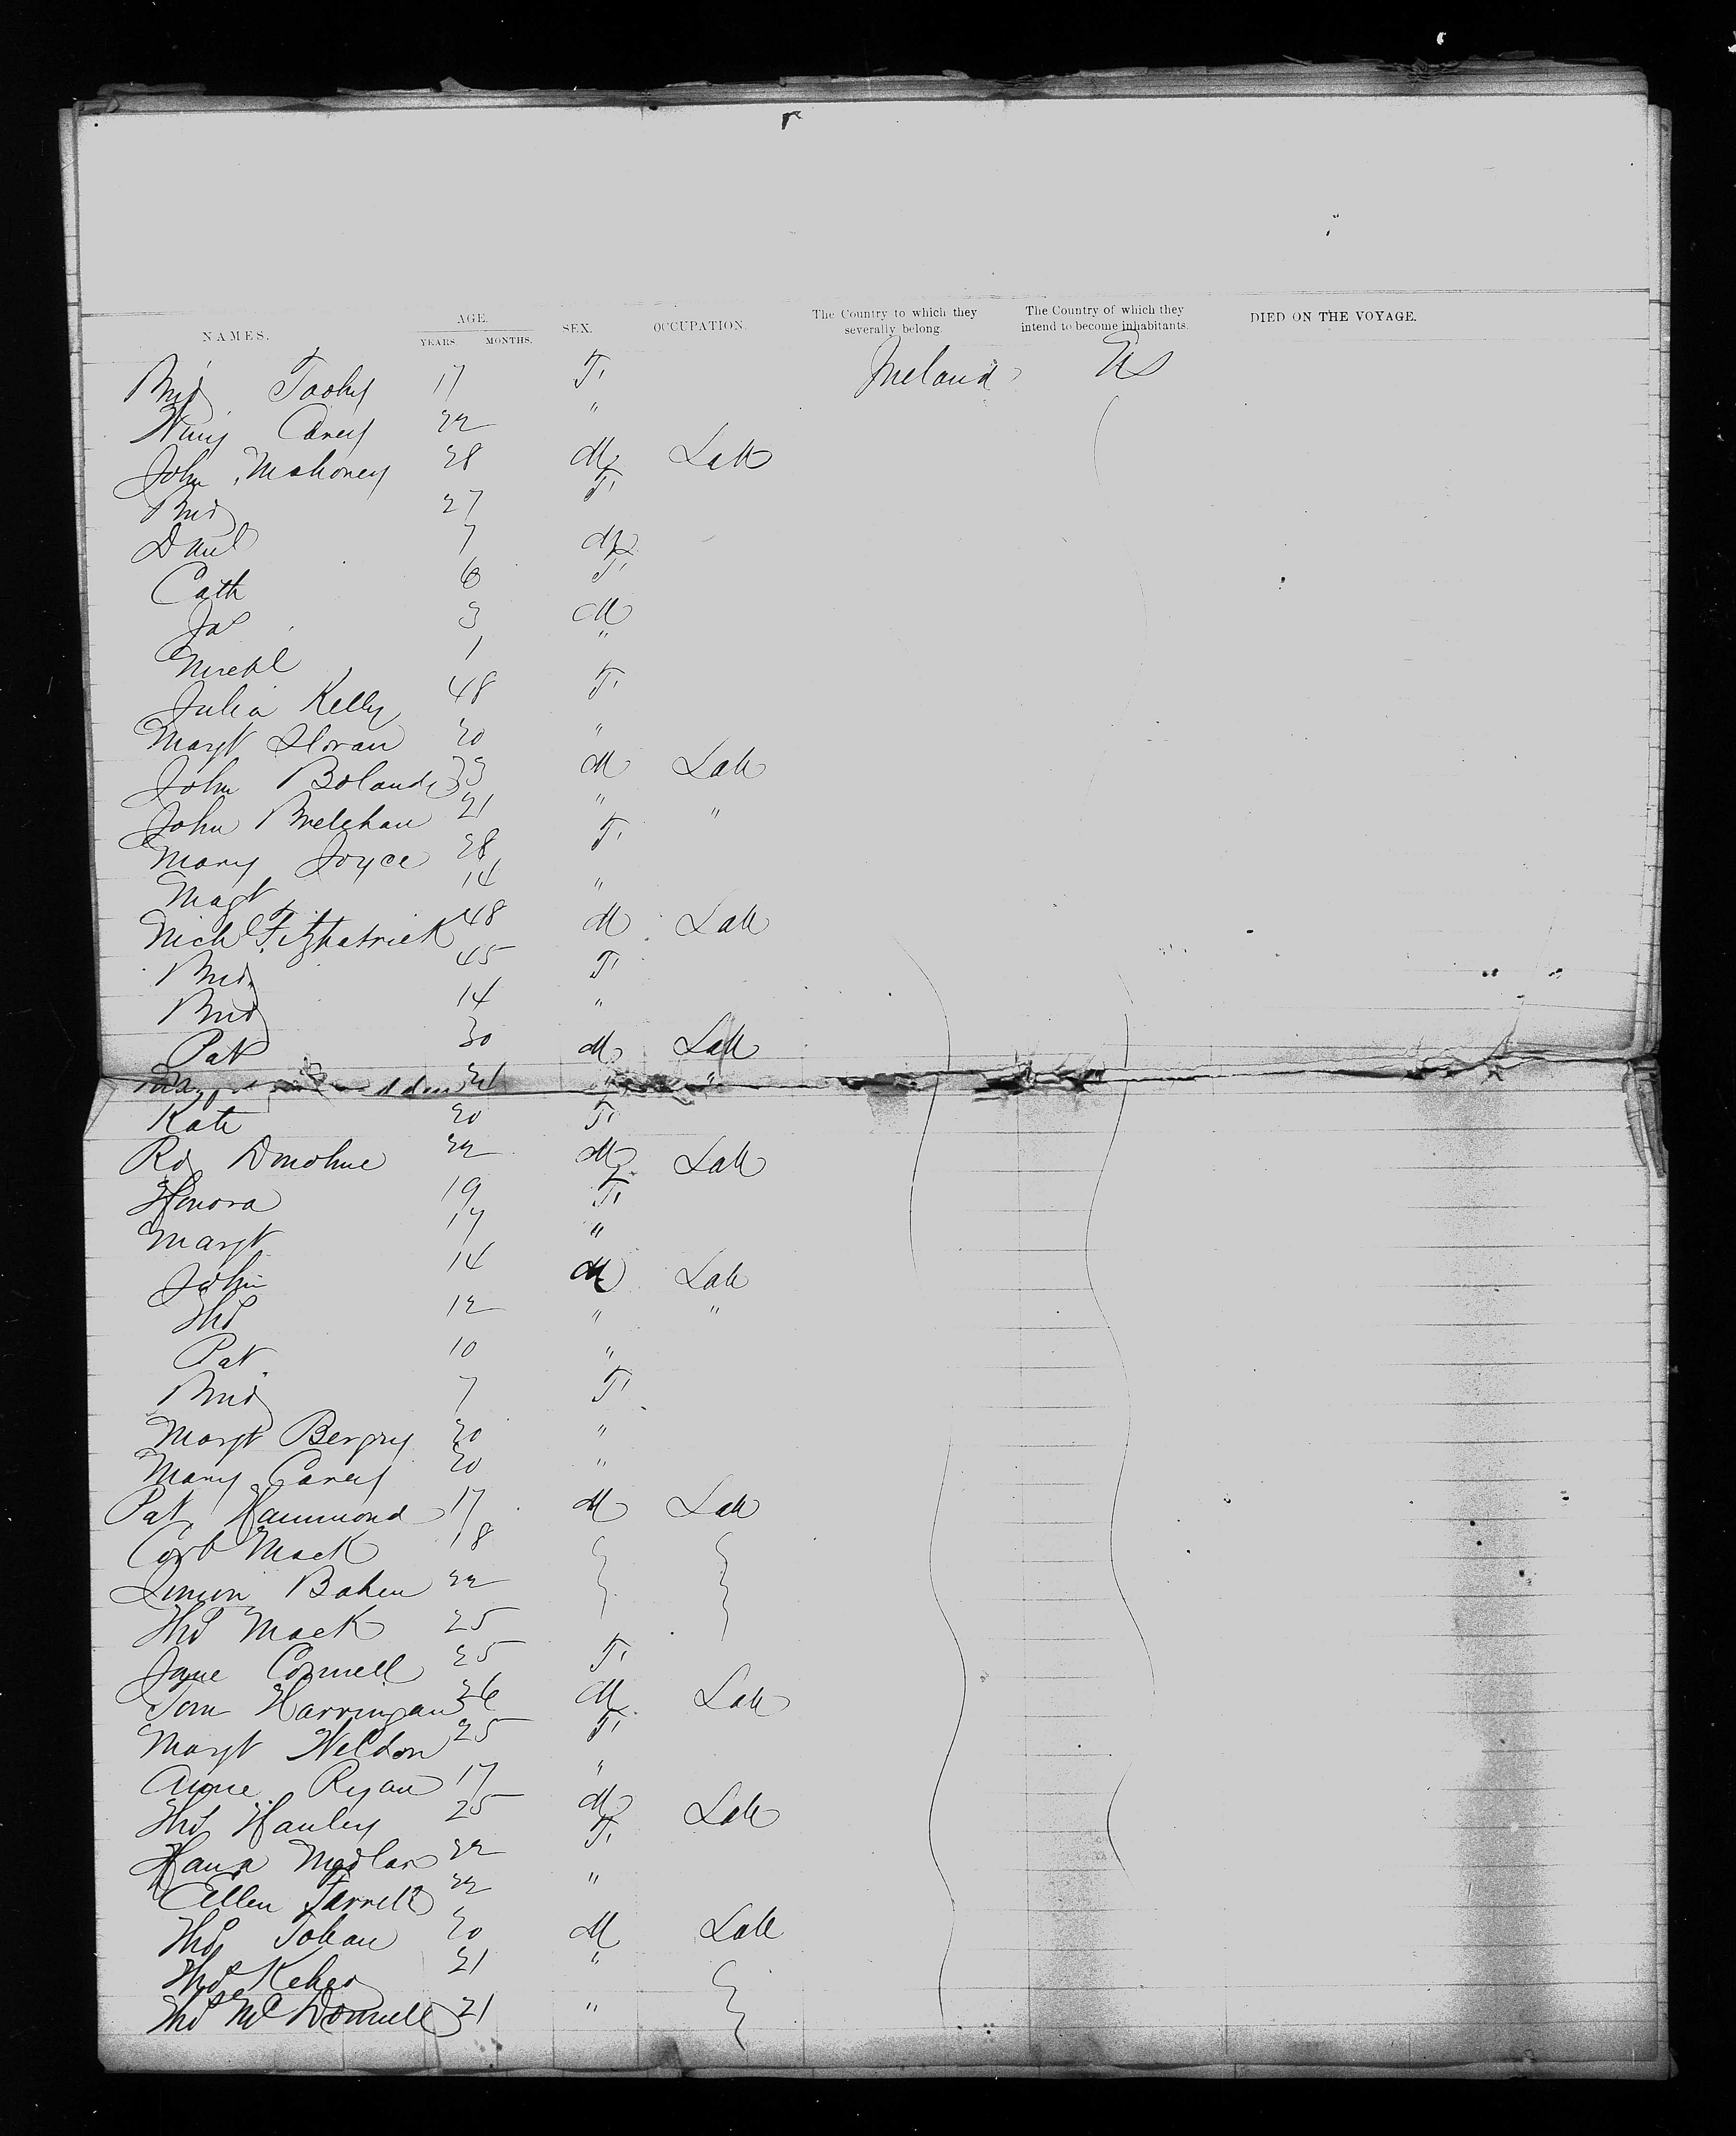 NAMES. AGE. YEARS. MONTHS. SEX. OCCUPATION. The Country to which they severally belong. The Country of which they intend to become inhabitants. DIED ON THE VOYAGE.
Brid Toohy 17 F Ireland US
Winy Carey 22 "
John Mahoney 28 M Lab
Brid 27 F
Danl 7 M
Cath 6 F
Jas 3 M
Michl 1 "
Julia Kelly 48 F
Margt Horan 20 "
John Boland 33 M Lab
John 21 " "
Mary Joyce 28 F
Magt 14 "
Mich Fitzpatrick 48 M Lab
Brid 45 F
Brid 14 "
Pat 30 M Lab
21 "
Kate 20 F
Rd Donohue 22 M Lab
Honora 19 F
Margt 17 "
John 14 M Lab
Ths 12 " "
Pat 10 "
Brid 7 F
Margt 20 "
Mary Carey 20 "
Pat Hammond 17 M Lab
Mack 18
Simon Bohen 22
Ths Mack 25
Jane Connell 25 F
Tom Harringan 26 M Lab
Margt Weldon 25 F
Anne Ryan 17 "
Ths Hanley 25 M Lab
Hana 22 F
Ellen Farrell 22 "
Ths Toban 20 M Lab
Ths Keheo 21 "
Ths McDonnell 21 "